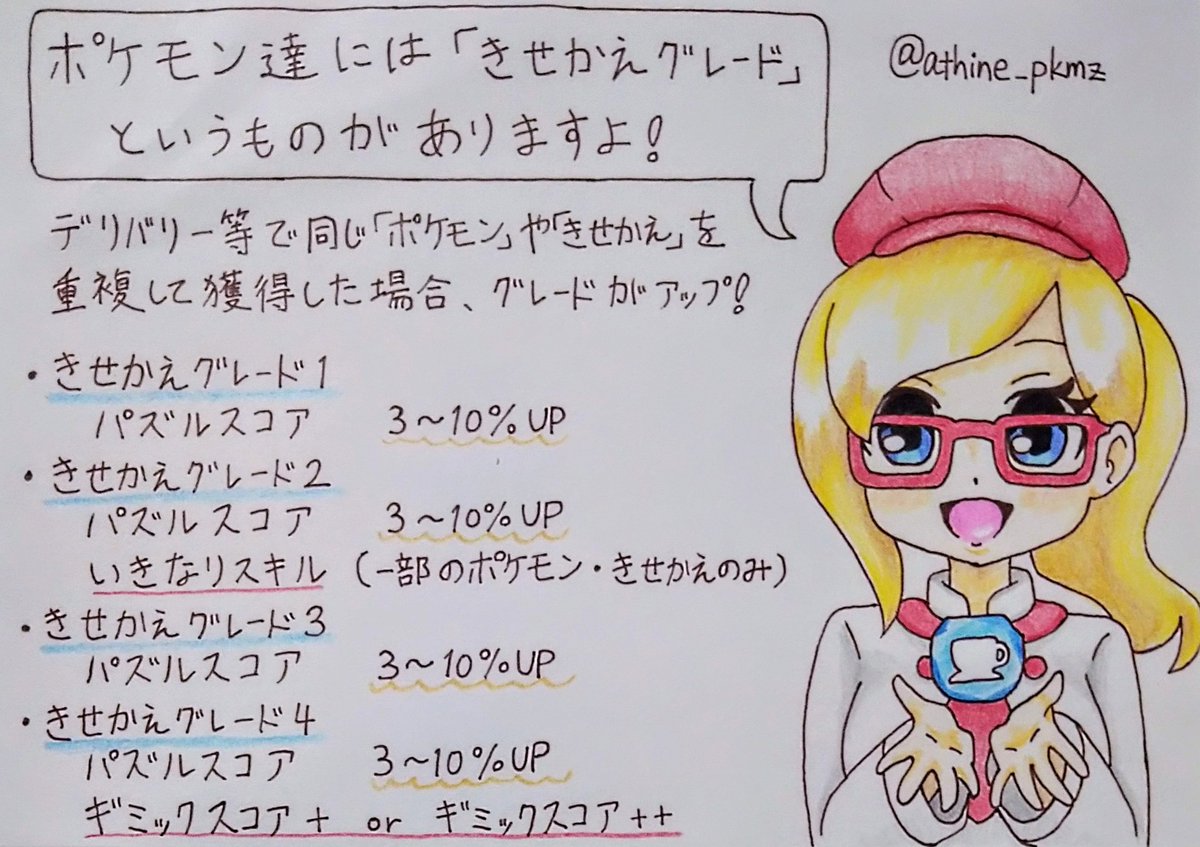 ポケモン達には「きせかえグレード」
というものがありますよ!
@athine_pkmz
デリバリー等で同じ「ポケモン」や「きせかえ」を
重複して獲得した場合、グレードがアップ!
・きせかえグレード1
パズルスコア 3〜10%UP
・きせかえグレード2
パズルスコア 3〜10%UP
いきなりスキル (一部のポケモン・きせかえのみ)
・きせかえグレード3
パズルスコア 3〜10%UP
・きせかえグレード4
パズルスコア 3〜10%UP
ギミックスコア+ or ギミックスコア++